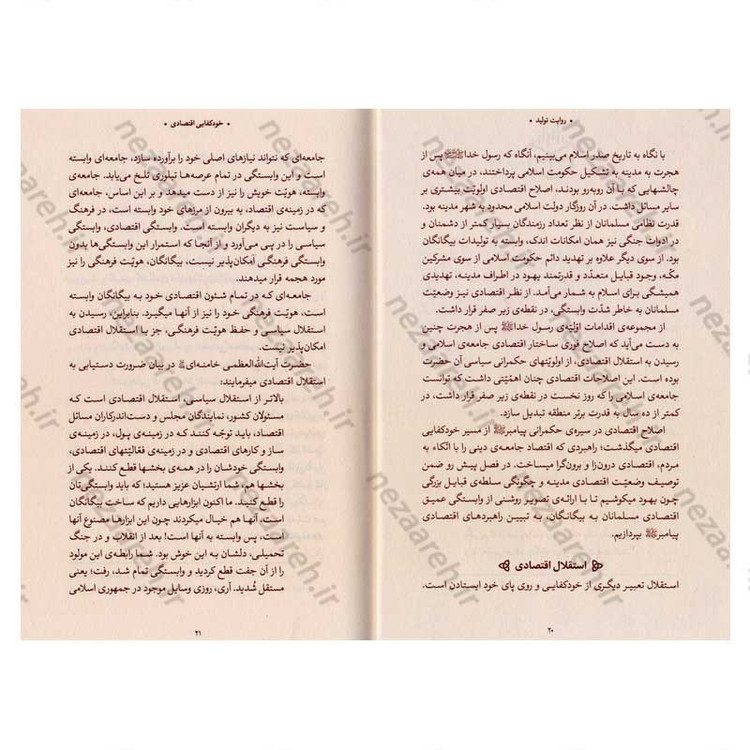 • روایت تولید •
با نگاه به تاریخ صدر اسلام می‌بینیم، آنگاه که رسول خداﷺ پس از
هجرت به مدینه به تشکیل حکومت اسلامی پرداختند، در میان همه‌ی
چالشهایی که با آن روبه‌رو بودند، اصلاح اقتصادی اولویّت بیشتری بر
سایر مسائل داشت. در آن روزگار دولت اسلامی محدود به شهر مدینه بود.
قدرت نظامی مسلمانان از نظر تعداد رزمندگان بسیار کمتر از دشمنان و
در ادوات جنگی نیز همان امکانات اندک، وابسته به تولیدات بیگانگان
بود. از سوی دیگر علاوه بر تهدید دائم حکومت اسلامی از سوی مشرکین
مکّه، وجود قبایل متعدّد و قدرتمند یهود در اطراف مدینه، تهدیدی
همیشگی برای اسلام به شمار می‌آمد. از نظر اقتصادی نیز وضعیّت
مسلمانان به خاطر شدّت وابستگی، در نقطه‌ی زیر صفر قرار داشت.
از مجموعه‌ی اقدامات اوّلیّه‌ی رسول خداﷺ پس از هجرت چنین
به دست می‌آید که اصلاح فوری ساختار اقتصادی جامعه‌ی اسلامی و
رسیدن به استقلال اقتصادی، از اولویّتهای حکمرانی سیاسی آن حضرت
بوده است. این اصلاحات اقتصادی چنان اهمّیّتی داشت که توانست
جامعه‌ی اسلامی را که روز نخست در نقطه‌ی زیر صفر قرار داشت، در
کمتر از ده سال به قدرت برتر منطقه تبدیل سازد.
اصلاح اقتصادی در سیره‌ی حکمرانی پیامبرﷺ از مسیر خودکفایی
اقتصادی میگذشت؛ راهبردی که اقتصاد جامعه‌ی دینی را با اتّکاء به
مردم، اقتصادی درون‌زا و برون‌گرا میساخت. در فصل پیش رو ضمن
توصیف وضعیّت اقتصادی مدینه و چگونگی سلطه‌ی قبایل بزرگی
چون یهود میکوشیم تا با ارائه‌ی تصویر روشنی از وابستگی عمیق
اقتصادی مسلمانان به بیگانگان، به تبیین راهبردهای اقتصادی
پیامبرﷺ بپردازیم.
استقلال اقتصادی
استقلال تعبیر دیگری از خودکفایی و روی پای خود ایستادن است.
۲۰
• خودکفایی اقتصادی •
جامعه‌ای که نتواند نیازهای اصلی خود را برآورده سازد، جامعه‌ای وابسته
است و این وابستگی در تمام عرصه‌ها تبلوری تلخ می‌یابد. جامعه‌ی
وابسته، هویّت خویش را نیز از دست میدهد و بر این اساس، جامعه‌ای
که در زمینه‌ی اقتصاد، به بیرون از مرزهای خود وابسته است، در فرهنگ
و سیاست نیز به دیگران وابسته است. وابستگی اقتصادی، وابستگی
سیاسی را در پی می‌آورد و از آنجا که استمرار این وابستگی‌ها بدون
وابستگی فرهنگی امکان‌پذیر نیست، بیگانگان، هویّت فرهنگی را نیز
مورد هجمه قرار میدهند.
جامعه‌ای که در تمام شئون اقتصادی خود به بیگانگان وابسته
است، هویّت فرهنگی خود را نیز از آنها میگیرد. بنابراین، رسیدن به
استقلال سیاسی و حفظ هویّت فرهنگی، جز با استقلال اقتصادی
امکان‌پذیر نیست.
حضرت آیت‌الله‌العظمی خامنه‌ای در بیان ضرورت دستیابی به
استقلال اقتصادی میفرمایند:
بالاتر از استقلال سیاسی، استقلال اقتصادی است که
مسئولان کشور، نمایندگان مجلس و دست‌اندرکاران مسائل
اقتصاد، باید توجّه کنند که در زمینه‌ی پول، در زمینه‌ی
ساز و کارهای اقتصادی و در زمینه‌ی فعّالیّتهای اقتصادی،
وابستگی خودشان را در همه‌ی بخشها قطع کنند. یکی از
بخشها هم، شما ارتشیان عزیز هستید؛ که باید وابستگی‌تان
را قطع کنید. ما اکنون ابزارهایی داریم که ساخت بیگانگان
است. آنها هم خیال میکردند چون این ابزارها مصنوع آنها
است، پس وابسته به آنها است! بعد از انقلاب و در جنگ
تحمیلی، دلشان به این خوش بود. شما رابطه‌ی این مولود
را از آن جفت قطع کردید و وابستگی تمام شد، رفت؛ یعنی
مستقل شُدید. آری، روزی وسایل موجود در جمهوری اسلامی
۲۱
nezaareh.ir
nezaareh.ir
nezaareh.ir
nezaareh.ir
nezaareh.ir